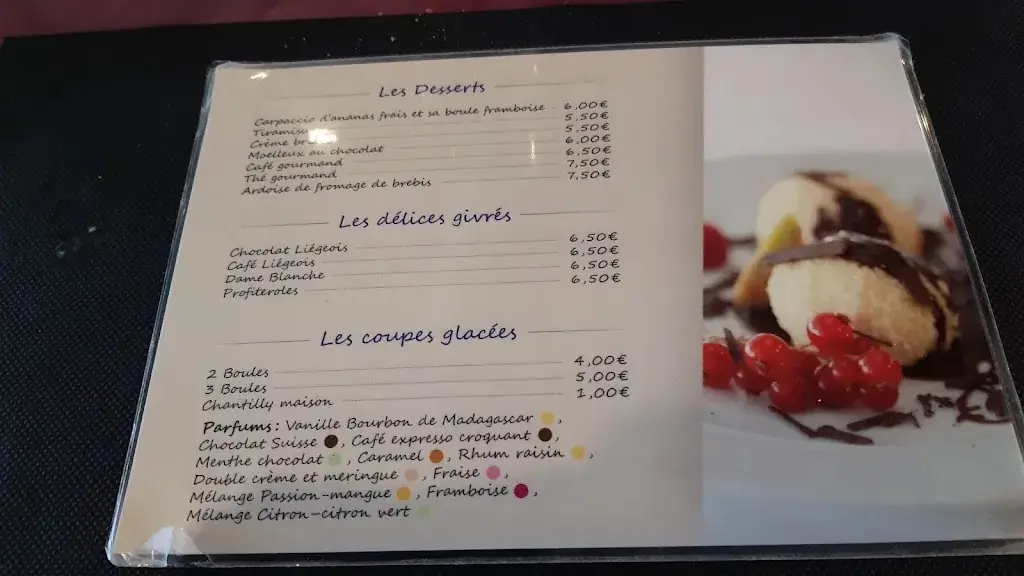 Les Desserts
Carpaccio d'ananas frais et sa boule framboise 6,00€
Tiramisu 5,50€
Crème 5,50€
Moelleux au chocolat 6,00€
Café gourmand 6,50€
Thé gourmand 7,50€
Ardoise de fromage de brebis 7,50€
Les délices givrés
Chocolat Liégeois 6,50€
Café Liégeois 6,50€
Dame Blanche 6,50€
Profiteroles 6,50€
Les coupes glacées
2 Boules 4,00€
3 Boules 5,00€
Chantilly maison 1,00€
Parfums : Vanille Bourbon de Madagascar ,
Chocolat Suisse , Café expresso croquant ,
Menthe chocolat , Caramel , Rhum raisin ,
Double crème et meringue , Fraise ,
Mélange Passion-mangue , Framboise ,
Mélange Citron-citron vert